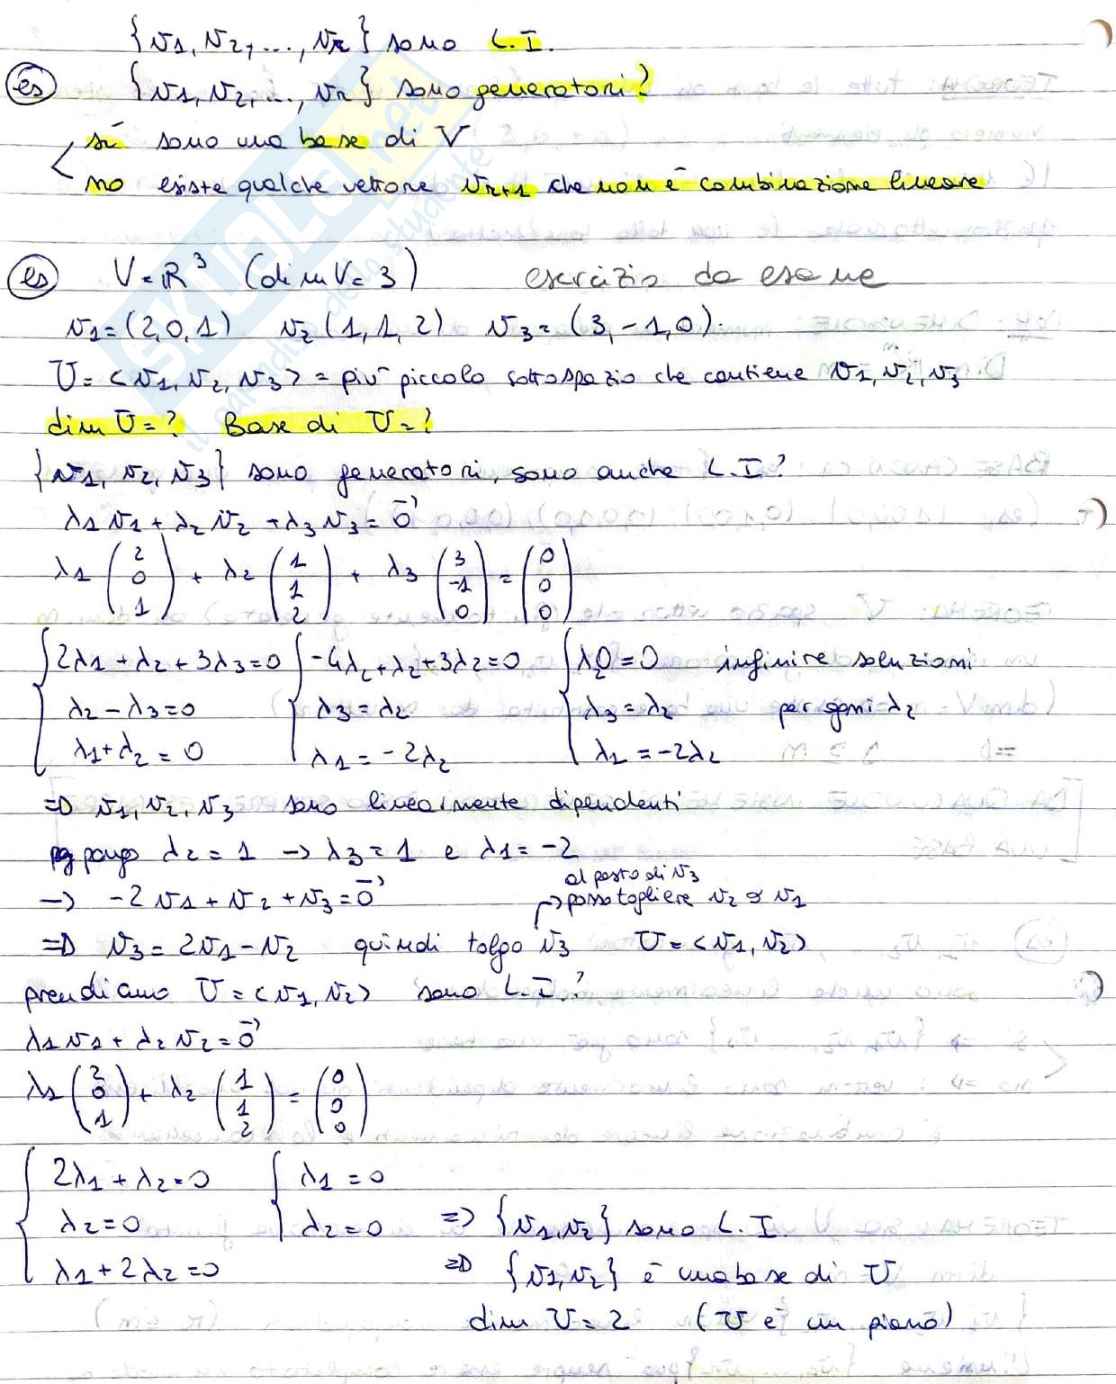 {v1, v2, ..., vr} sono L.I.
es {v1, v2, ..., vr} sono generatori?
sì sono una base di V
no esiste qualche vettore vr+1 che non è combinazione lineare
es V=ℝ³ (dim V=3) esercizio da esame
v1=(2,0,1) v2(1,1,2) v3=(3,-1,0).
U=<v1, v2, v3> = più piccolo sottospazio che contiene v1, v2, v3
dim U=? Base di U=?
{v1, v2, v3} sono generatori, sono anche L.I.?
λ1v1+λ2v2+λ3v3=0⃗
λ1 (2 0 1) + λ2 (1 1 2) + λ3 (3 -1 0) = (0 0 0)
{2λ1+λ2+3λ3=0 {-4λ2+λ2+3λ2=0 {λ20=0 infinire soluzioni
λ2-λ3=0 λ3=λ2 λ3=λ2 per ogni λ2
λ1+λ2=0 λ1=-2λ2 λ1=-2λ2
⇒ v1, v2, v3 sono linearmente dipendenti
pongo λ2=1 → λ3=1 e λ1=-2
al posto di v3
→ -2v1+v2+v3=0⃗ → posso togliere v2 o v1
⇒ v3=2v1-v2 quindi tolgo v3 U=<v1, v2>
prendiamo U=<v1, v2> sono L.I.?
λ1v1+λ2v2=0⃗
λ1 (2 0 1) + λ2 (1 1 2) = (0 0 0)
{2λ1+λ2=0 {λ1=0
λ2=0 λ2=0 ⇒ {v1,v2} sono L.I.
λ1+2λ2=0 ⇒ {v1,v2} è una base di U
dim U=2 (U è un piano)